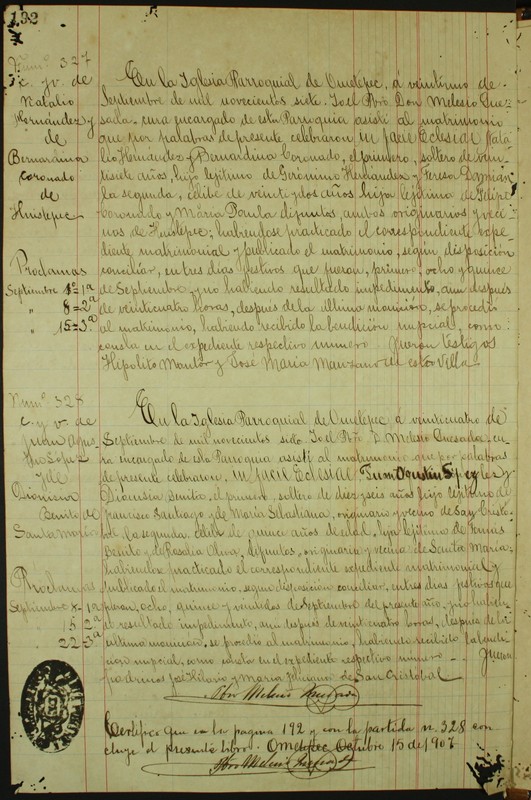 132
Num.º 327
c. y v. de
Natalio
Hernández y
de
Bernardina
Coronado
de
Huistepec
Proclamas
Septiembre 1º=1ª
" 8=2ª
" 15=3ª
En la Iglesia Parroquial de Ometepec, a veintiuno de
Septiembre de mil novecientos siete. Yo el Pbro. Don Melesio Que
sada, cura encargado de esta Parroquia asistí al matrimonio
que por palabras de presente celebraron, in facie Eclesiae Nata
lio Hernández y Bernardina Coronado, el primero, soltero de vein
tisiete años, hijo legítimo de Gerónimo Hernández y Teresa Damián
la segunda, célibe de veinte y dos años hija legítima de Felipe
Coronado y María Paula difuntos, ambos originarios y veci
nos de Huistepec; habiéndose practicado el correspondiente expe
diente matrimonial y publicado el matrimonio, según disposición
conciliar, en tres días festivos que fueron, primero, ocho y quince
de Septiembre, y no habiendo resultado impedimento, aun después
de veinticuatro horas, después de la última monición, se procedió
al matrimonio, habiendo recibido la bendición nupcial, como
consta en el expediente respectivo número. Fueron testigos
Hipolito Mantor y José María Manzano de esta Villa.
Num.º 328
c. y v. de
Juan Agus
tín López
y de
Dionicia
Benito de
Santa María
Proclamas
Septiembre 8= 1ª
15=2ª
22=3ª
En la Iglesia Parroquial de Ometepec a veinticuatro de
Septiembre de mil novecientos siete. Yo el Pbro. D. Melesio Quesada, cu
ra encargado de esta Parroquia asistí al matrimonio que por palabras
de presente celebraron, in facie Eclesiae Juan Agustín López y
Dionicia Benito, el primero, soltero de diez y seis años hijo legítimo de
Francisco Santiago y de María Sebastiana, originario y vecino de San Cristo
bal, la segunda, célibe de quince años de edad, hija legítima de Tomás
Benito y de Rosalia Oliva, difuntos, originaria y vecina de Santa María
habiéndose practicado el correspondiente expediente matrimonial y
publicado el matrimonio, según disposición conciliar, en tres días festivos que
fueron, ocho, quince y veintidos de Septiembre del presente año, y no habien
do resultado impedimento, aun después de veinticuatro horas, después de la
última monición, se procedió al matrimonio, habiendo recibido la bendi
ción nupcial, como consta en el expediente respectivo número. Fueron
padrinos José Hilario y María Juliana de San Cristobal
Pbro Melesio Quesada
Certifico que en la página 192 y con la partida n. 328 con
cluye el presente libro. Ometepec Octubre 15 de 1907
Pbro Melesio Quesada